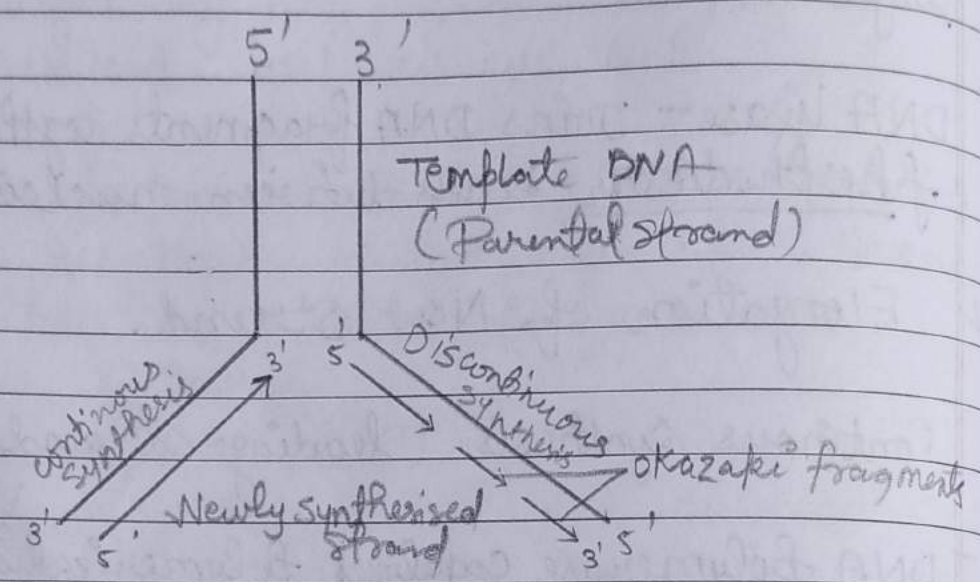 5' 3'
Template DNA
(Parental strand)
3' 5'
Continous
synthesis
Discontinuous
synthesis
okazaki fragments
Newly synthesised
strand
3' 5' 3' 5'